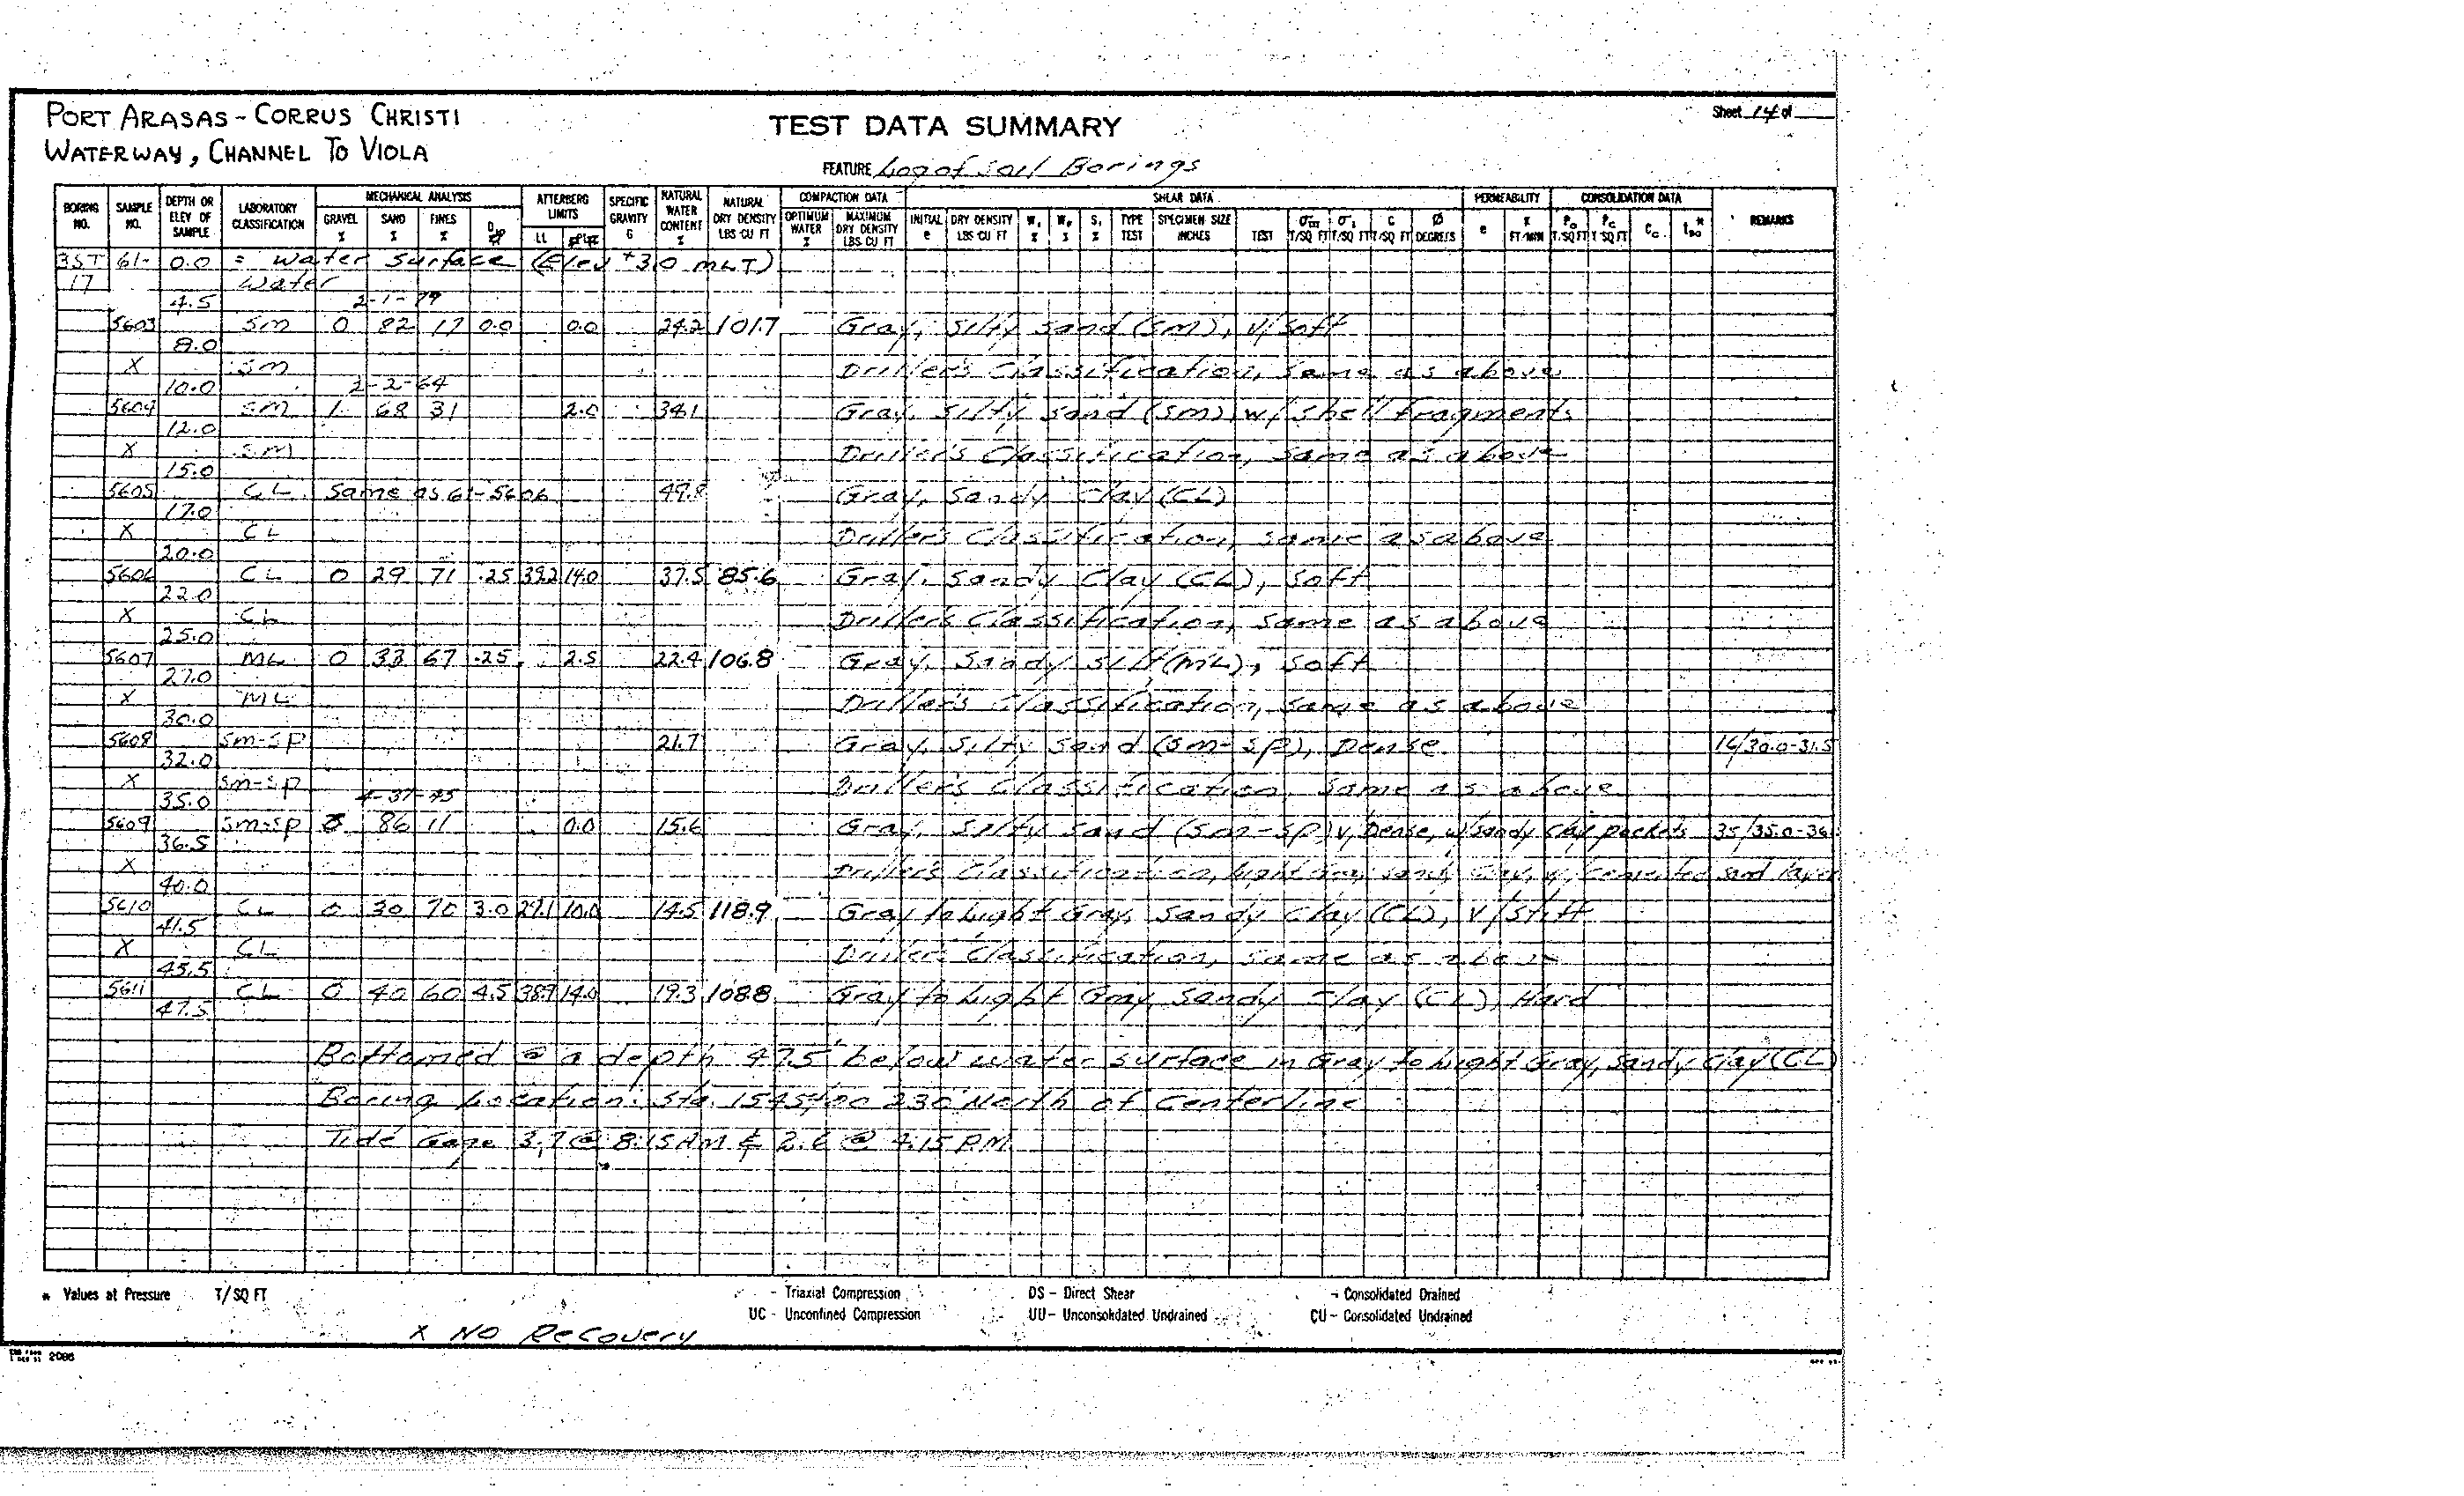 PORT ARASAS - CORRUS CHRISTI
WATERWAY, CHANNEL TO VIOLA
TEST DATA SUMMARY
Sheet 14 of
FEATURE Log of Soil Borings
BORING NO. SAMPLE NO. DEPTH OR ELEV OF SAMPLE LABORATORY CLASSIFICATION MECHANICAL ANALYSIS GRAVEL % SAND % FINES % ATTERBERG LIMITS LL SPECIFIC GRAVITY G NATURAL WATER CONTENT % NATURAL DRY DENSITY LBS CU FT COMPACTION DATA OPTIMUM WATER % MAXIMUM DRY DENSITY LBS CU FT SHEAR DATA INITIAL e DRY DENSITY LBS CU FT TYPE TEST SPECIMEN SIZE INCHES TEST T/SQ FT T/SQ FT C T/SQ FT Ø DEGREES PERMEABILITY e K FT/MIN CONSOLIDATION DATA Po T/SQ FT Pc T/SQ FT Cc t50* REMARKS
3ST 61- 0.0 = Water Surface (Elev +3.0 MLT)
17 Water
4.5 2-1-79
5603 SM 0 82 17 0.0 0.0 24.2 101.7 Gray, Silty Sand (SM), V/Soft
8.0
X SM Driller's Classification, Same as above
10.0 2-2-64
5604 SM 1 68 31 2.0 34.1 Gray, Silty Sand (SM) w/ shell fragments
12.0
X SM Driller's Classification, Same as above
15.0
5605 CL Same as 61-5606 49.8 Gray, Sandy Clay (CL)
17.0
X CL Driller's Classification, same as above
20.0
5606 CL 0 29 71 .25 39.2 14.0 37.5 85.6 Gray, Sandy Clay (CL), Soft
22.0
X CL Driller's Classification, Same as above
25.0
5607 ML 0 33 67 .25 2.5 22.4 106.8 Gray, Sandy Silt (ML), Soft
27.0
X ML Driller's Classification, Same as above
30.0
5608 SM-SP 21.7 Gray, Silty Sand (SM-SP), Dense 16/30.0-31.5
32.0
X SM-SP Driller's Classification, Same as above
35.0 4-37-45
5609 SM-SP 86 11 0.0 15.6 Gray, Silty Sand (SM-SP) v, Dense, w/sandy clay pockets 35/35.0-36.
36.5
X Driller's Classification, Light Gray, Sandy Clay, w/ Cemented sand layer
40.0
5610 CL 0 30 70 3.0 29.1 10.0 14.5 118.9 Gray to Light Gray, Sandy Clay (CL), V/Stiff
41.5
X CL Driller's Classification, Same as above
45.5
5611 CL 0 40 60 4.5 38.9 14.0 19.3 108.8 Gray to Light Gray Sandy Clay (CL), Hard
47.5
Bottomed @ a depth 47.5' below water surface in Gray to Light Gray, Sandy Clay (CL)
Boring Location: Sta. 1545+00 230' North of Centerline
Tide Gage 3.7 @ 8:15 AM & 2.6 @ 4:15 P.M.
* Values at Pressure T/SQ FT
- Triaxial Compression DS - Direct Shear - Consolidated Drained
UC - Unconfined Compression UU - Unconsolidated Undrained CU - Consolidated Undrained
X No Recovery
2086